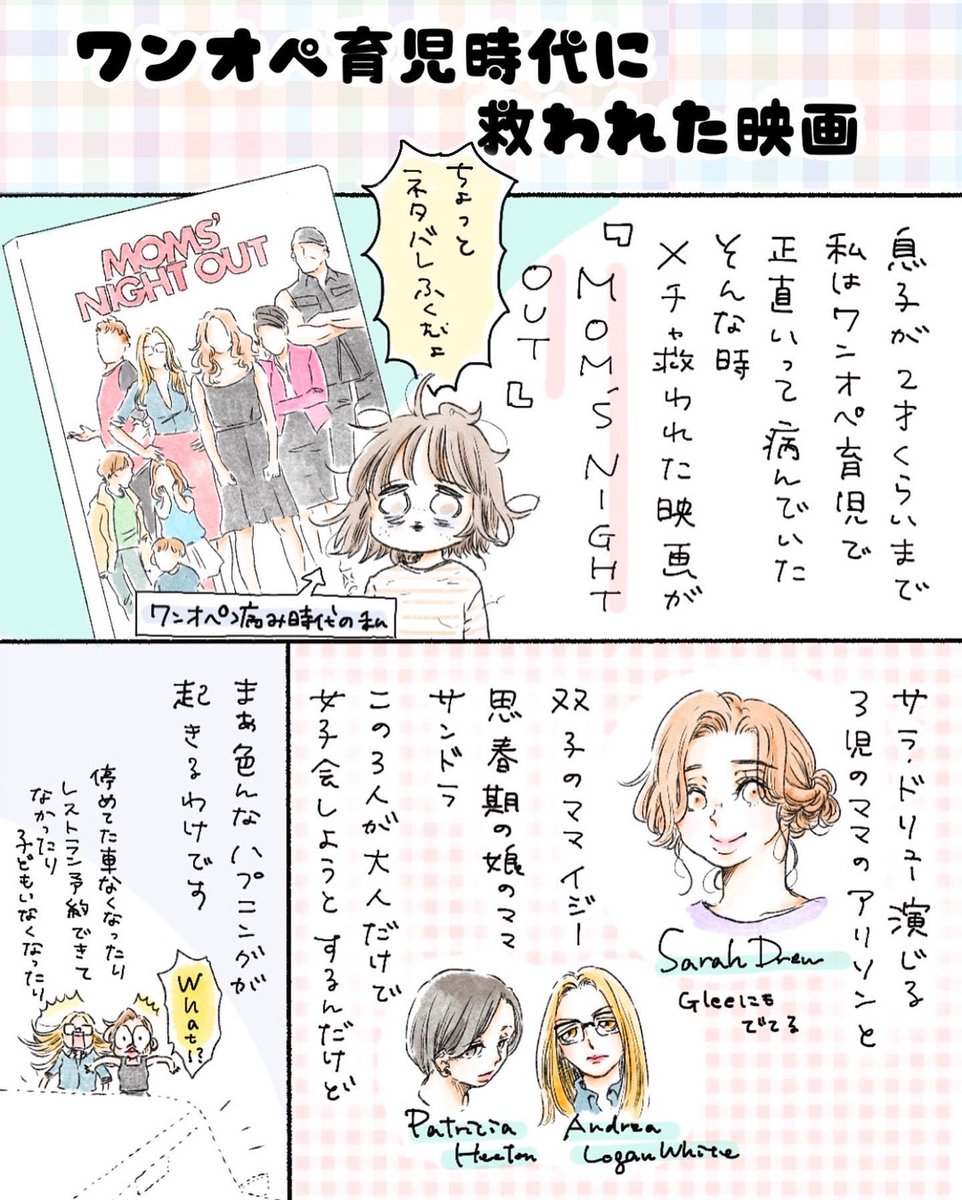 ワンオペ育児時代に
救われた映画
息子が2才くらいまで
私はワンオペ育児で
正直いって病んでいた
そんな時
メチャ救われた映画が
『MOM'S NIGHT
OUT』
ちょっと
ネタバレふくむよ
MOMS'
NIGHT OUT
ワンオペ病み時代の私
サラ・ドリュー演じる
3児のママのアリソンと
双子のママイジー
思春期の娘のママ
サンドラ
この3人が大人だけで
女子会しようとするんだけど
Sarah Drew
Gleeにも
でてる
Patricia
Heaton
Andrea
Logan White
まぁ色んなハプニングが
起きるわけです
停めてた車なくなったり
レストラン予約できて
なかったり
子どもいなくなったり
What!?